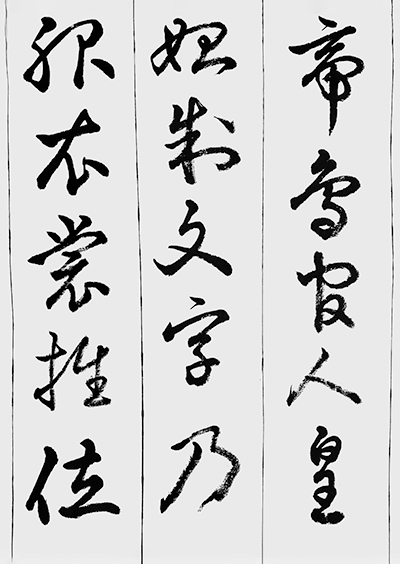 帝鸟官人皇
始制文字乃
服衣裳推位